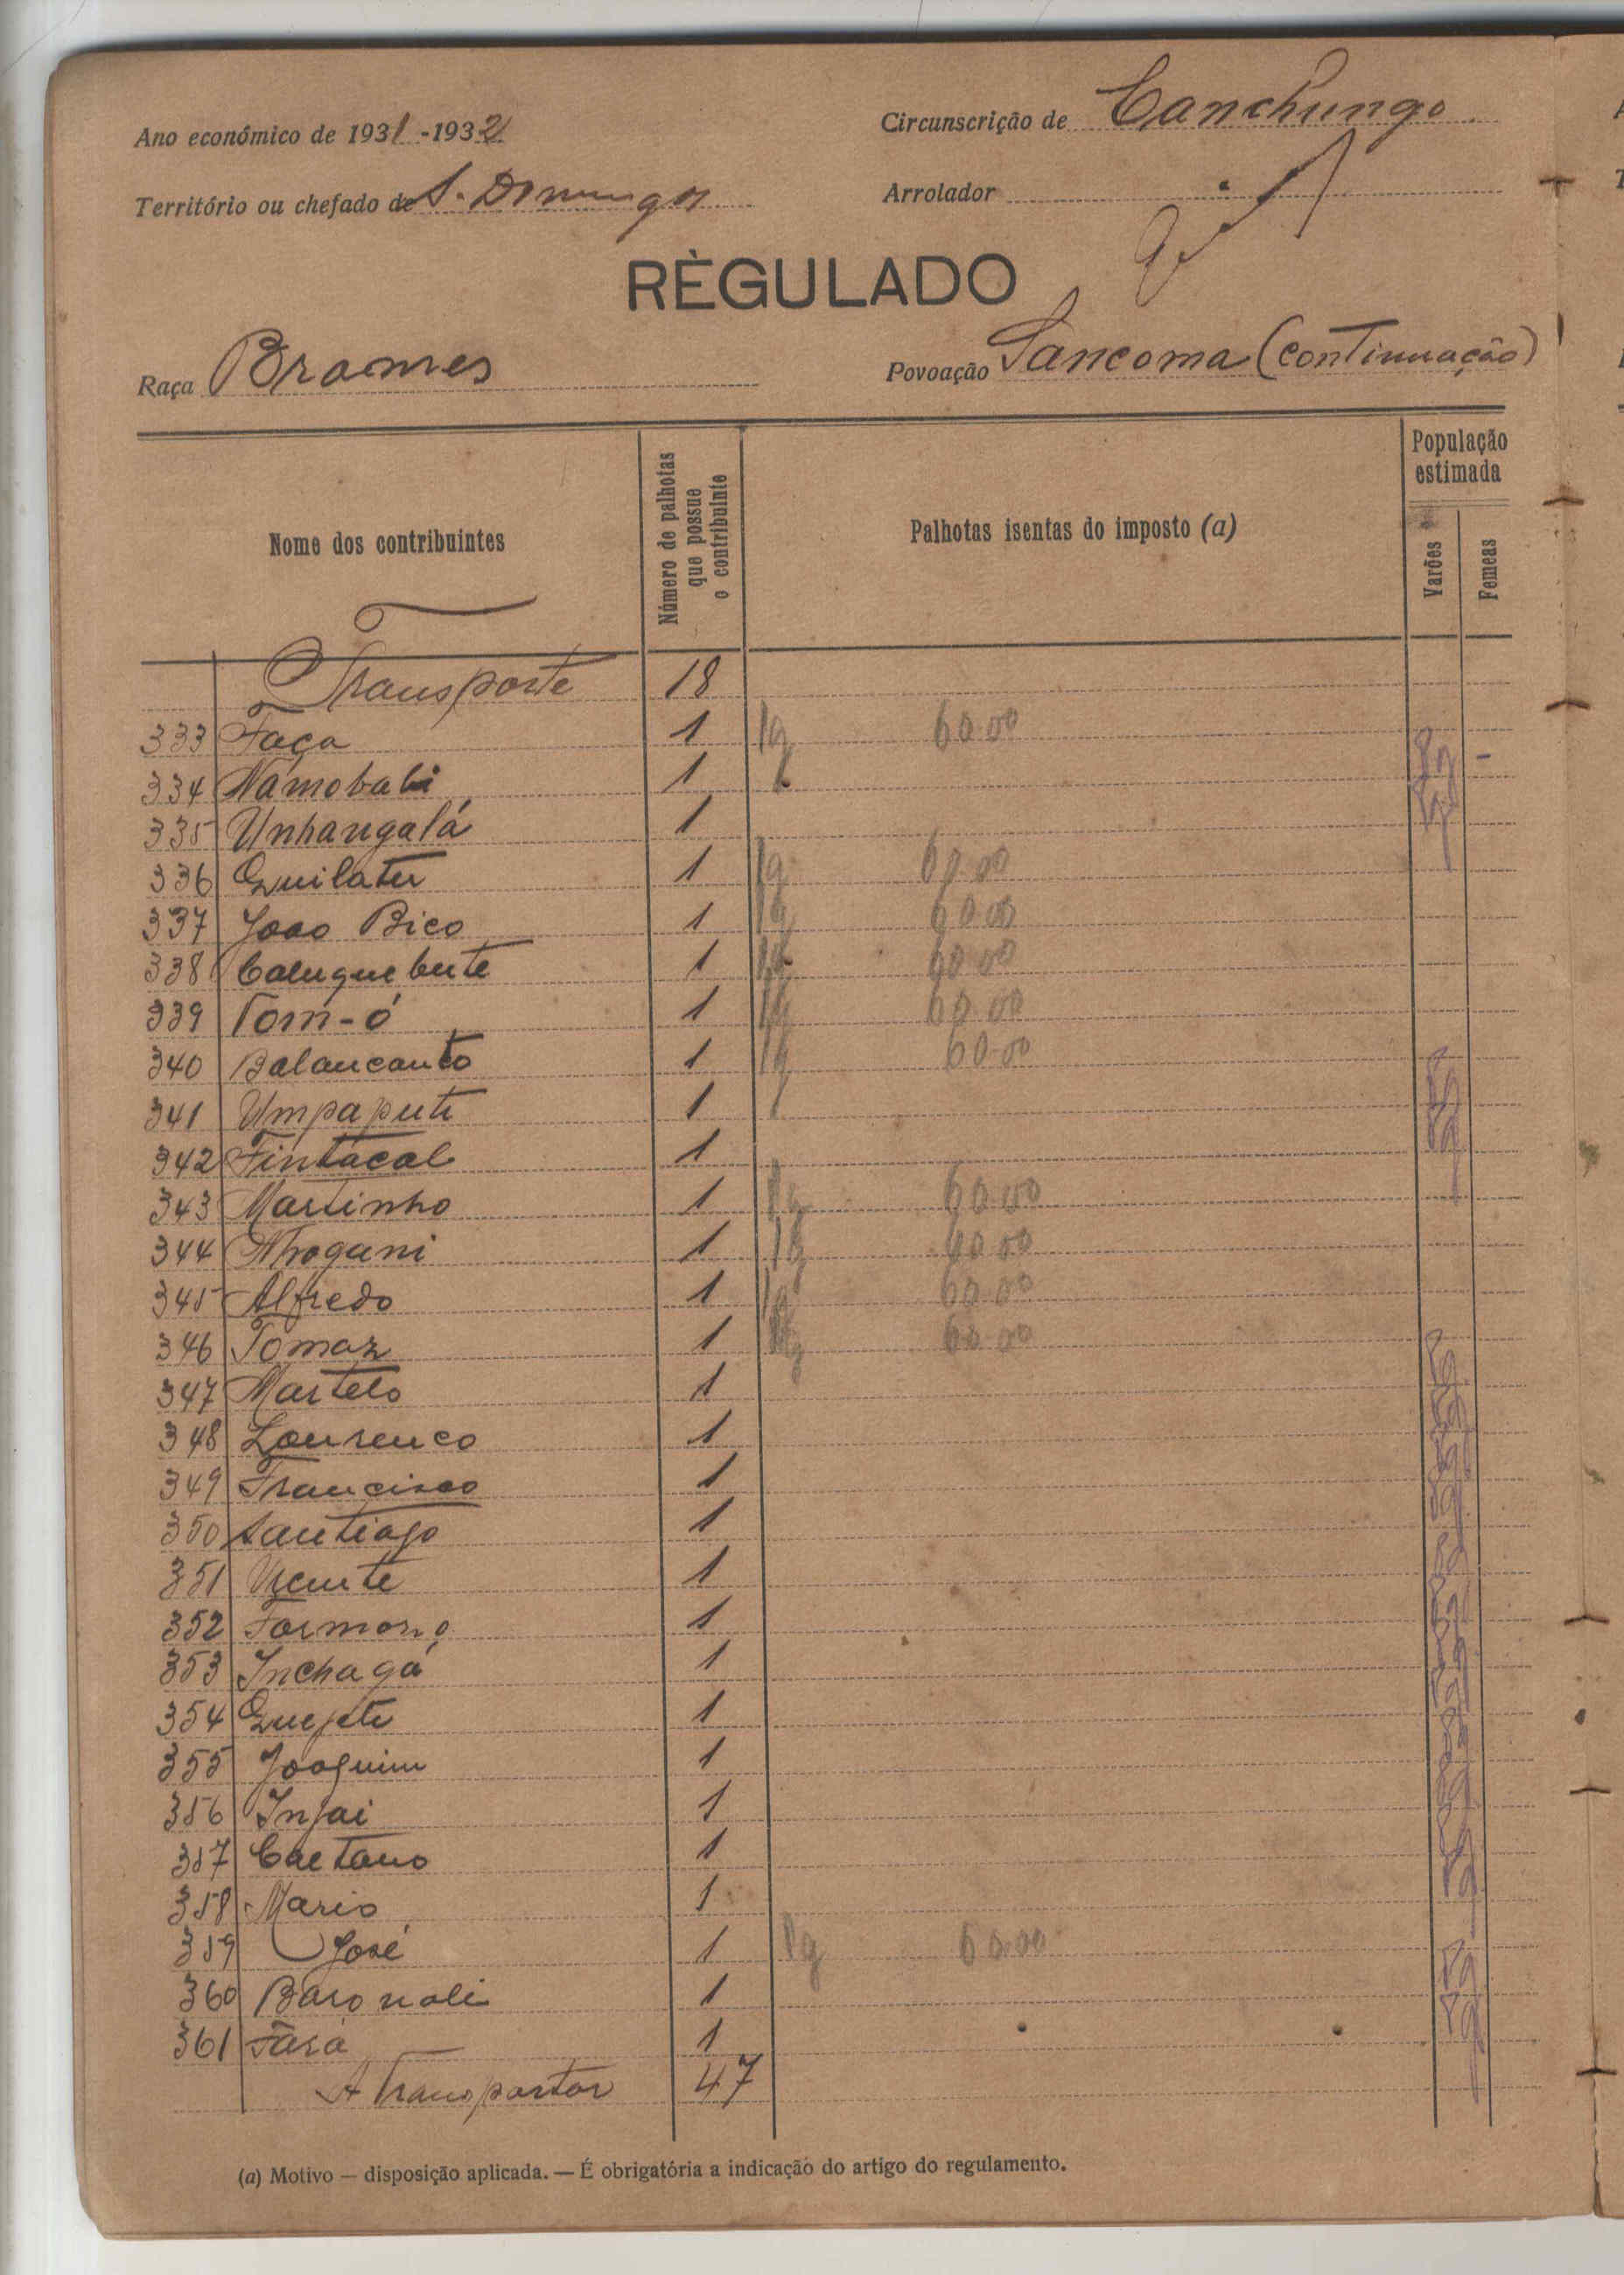 Ano económico de 1931-1932
Circunscrição de Canchungo
Território ou chefado de S. Domingos
Arrolador
RÈGULADO
Raça Brames
Povoação Sancoma (continuação)
Nome dos contribuintes
Número de palhotas que possue o contribuinte
Palhotas isentas do imposto (a)
População estimada
Varões
Femeas
Transporte 18
333 Faça 1 Pg 60.00
334 Namobabi 1
335 Unhangalá 1
336 Quilater 1 Pg 60.00
337 Joao Bico 1 Pg 60.00
338 1 Pg 60.00
339 Tom-ó 1 Pg 60.00
340 Balancanto 1 Pg 60.00
341 Umpaputi 1
342 Fintacal 1
343 Martinho 1 Pg 60.00
344 Nhogani 1 Pg 60.00
345 Alfredo 1 Pg 60.00
346 Tomaz 1 Pg 60.00
347 Martelo 1
348 Lourenco 1
349 Francisco 1
350 Santiago 1
351 Vicente 1
352 Formoso 1
353 Inchagá 1
354 1
355 Joaquim 1
356 Injai 1
357 Caetano 1
358 Mario 1
359 José 1 Pg 60.00
360 1
361 1
A Transportar 47
(a) Motivo — disposição aplicada. — É obrigatória a indicação do artigo do regulamento.